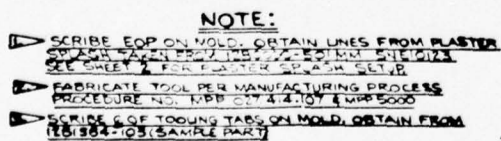 NOTE:
SCRIBE EOP ON MOLD. OBTAIN LINES FROM PLASTER
SPLASH TAKEN FROM MM
SEE SHEET 2 FOR PLASTER SPLASH SETUP
FABRICATE TOOL PER MANUFACTURING PROCESS
PROCEDURE NO. MPP
SCRIBE OF TOOLING TABS ON MOLD. OBTAIN FROM
(SAMPLE PART)